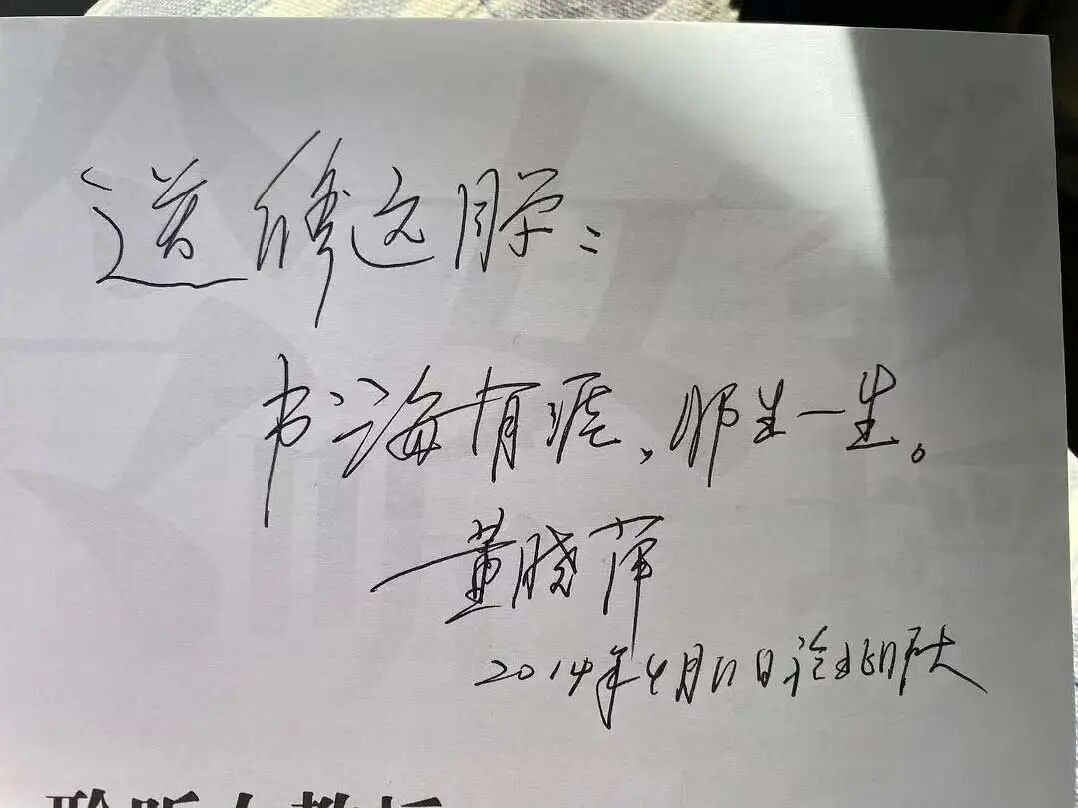 送修远同学：
书海有涯、师生一生。
董晓萍
2014年4月11日于北师大